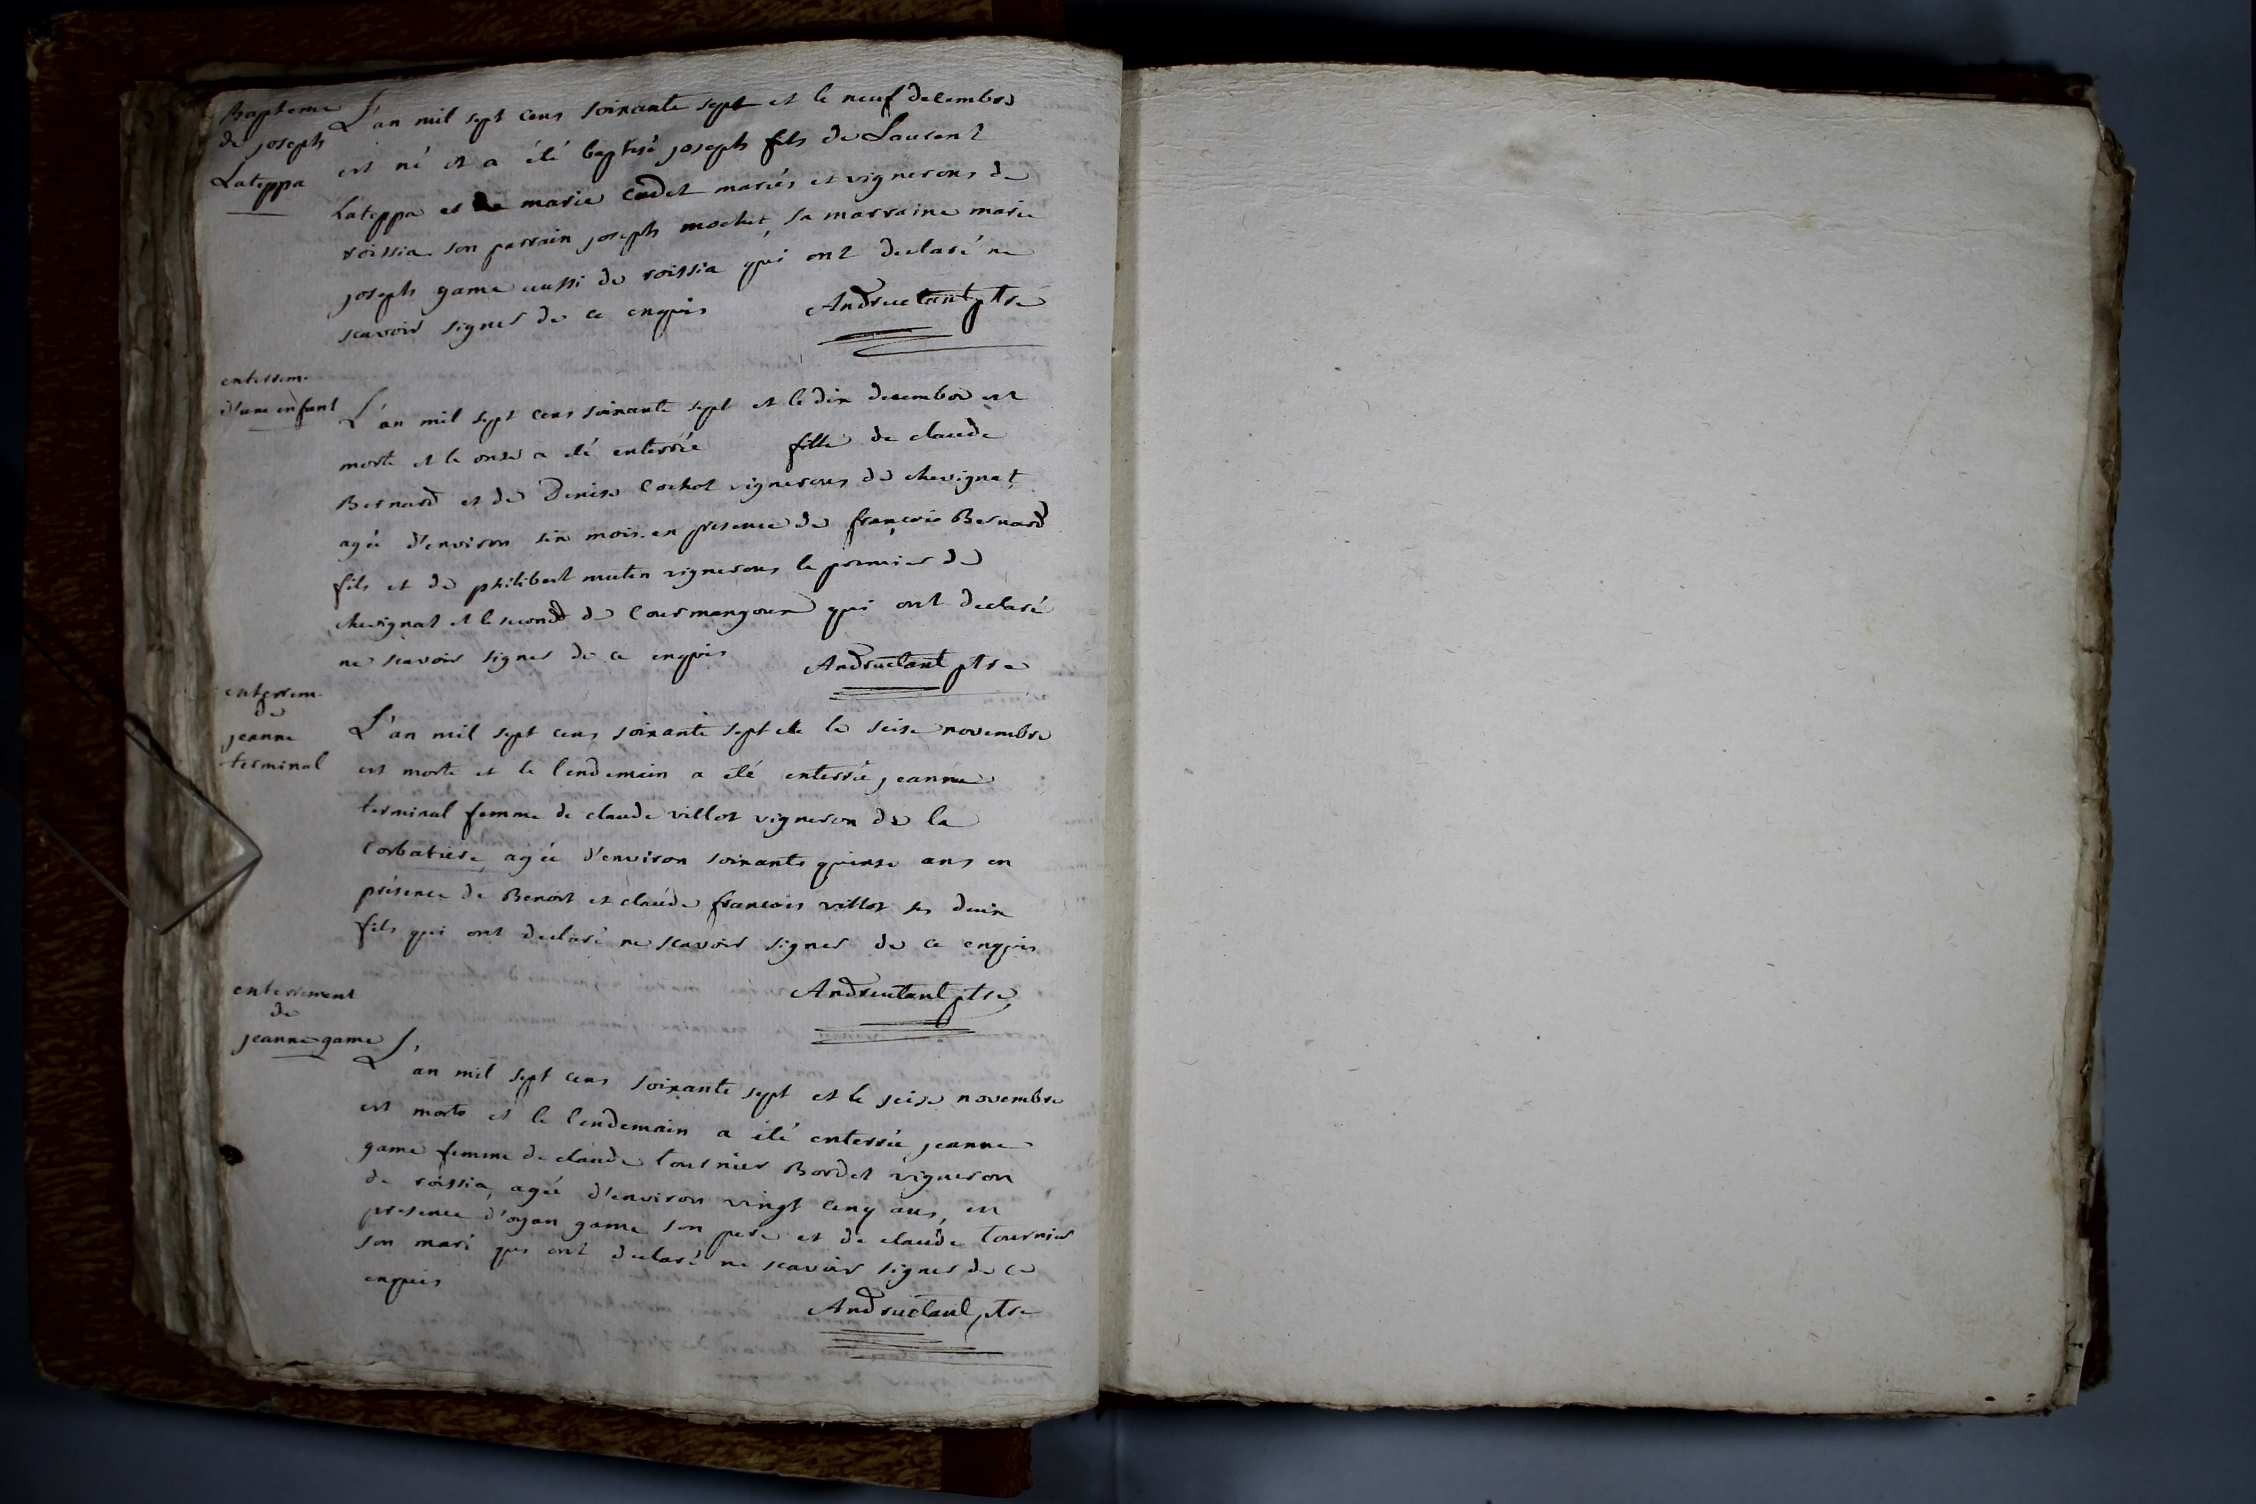 Bapteme
de joseph
Lateppa
L'an mil sept cens soixante sept et le neuf decembre
est né et a été baptisé joseph fils de Laurent
Lateppa et de marie cadet mariés et vignerons de
roissia son parrain joseph mochet, sa marraine marie
joseph game aussi de roissia qui ont declaré ne
scavoir signer de ce enquis
Andruetant ptre
enterrem.
d'une enfant
L'an mil sept cens soixante sept et le dix decembre est
morte et le onze a été enterrée fille de claude
Bernard et de Denise Cochet vignerons de chevignat
agée d'environ six mois. en presence de françois Bernard
fils et de philibert mutin vignerons le premier de
chevignat et le second de Courmangoux qui ont declaré
ne scavoir signer de ce enquis
Andruetant ptre
enterrem.
de
jeanne
terminal
L'an mil sept cens soixante sept et le seise novembre
est morte et le lendemain a été enterrée jeanne
terminal femme de claude villot vigneron de la
Corbatiere, agée d'environ soixante quinze ans en
présence de Benoit et claude francois villot ses deux
fils qui ont declaré ne scavoir signer de ce enquis
Andruetant ptre
enterrement
de
jeanne game
L'an mil sept cens soixante sept et le seise novembre
est morte et le lendemain a été enterrée jeanne
game femme de claude tournier Bordet vigneron
de roissia, agée d'environ vingt cinq ans, en
presence d'oyan game son pere et de claude tournier
son mari qui ont declaré ne scavoir signer de ce
enquis
Andruetant ptre